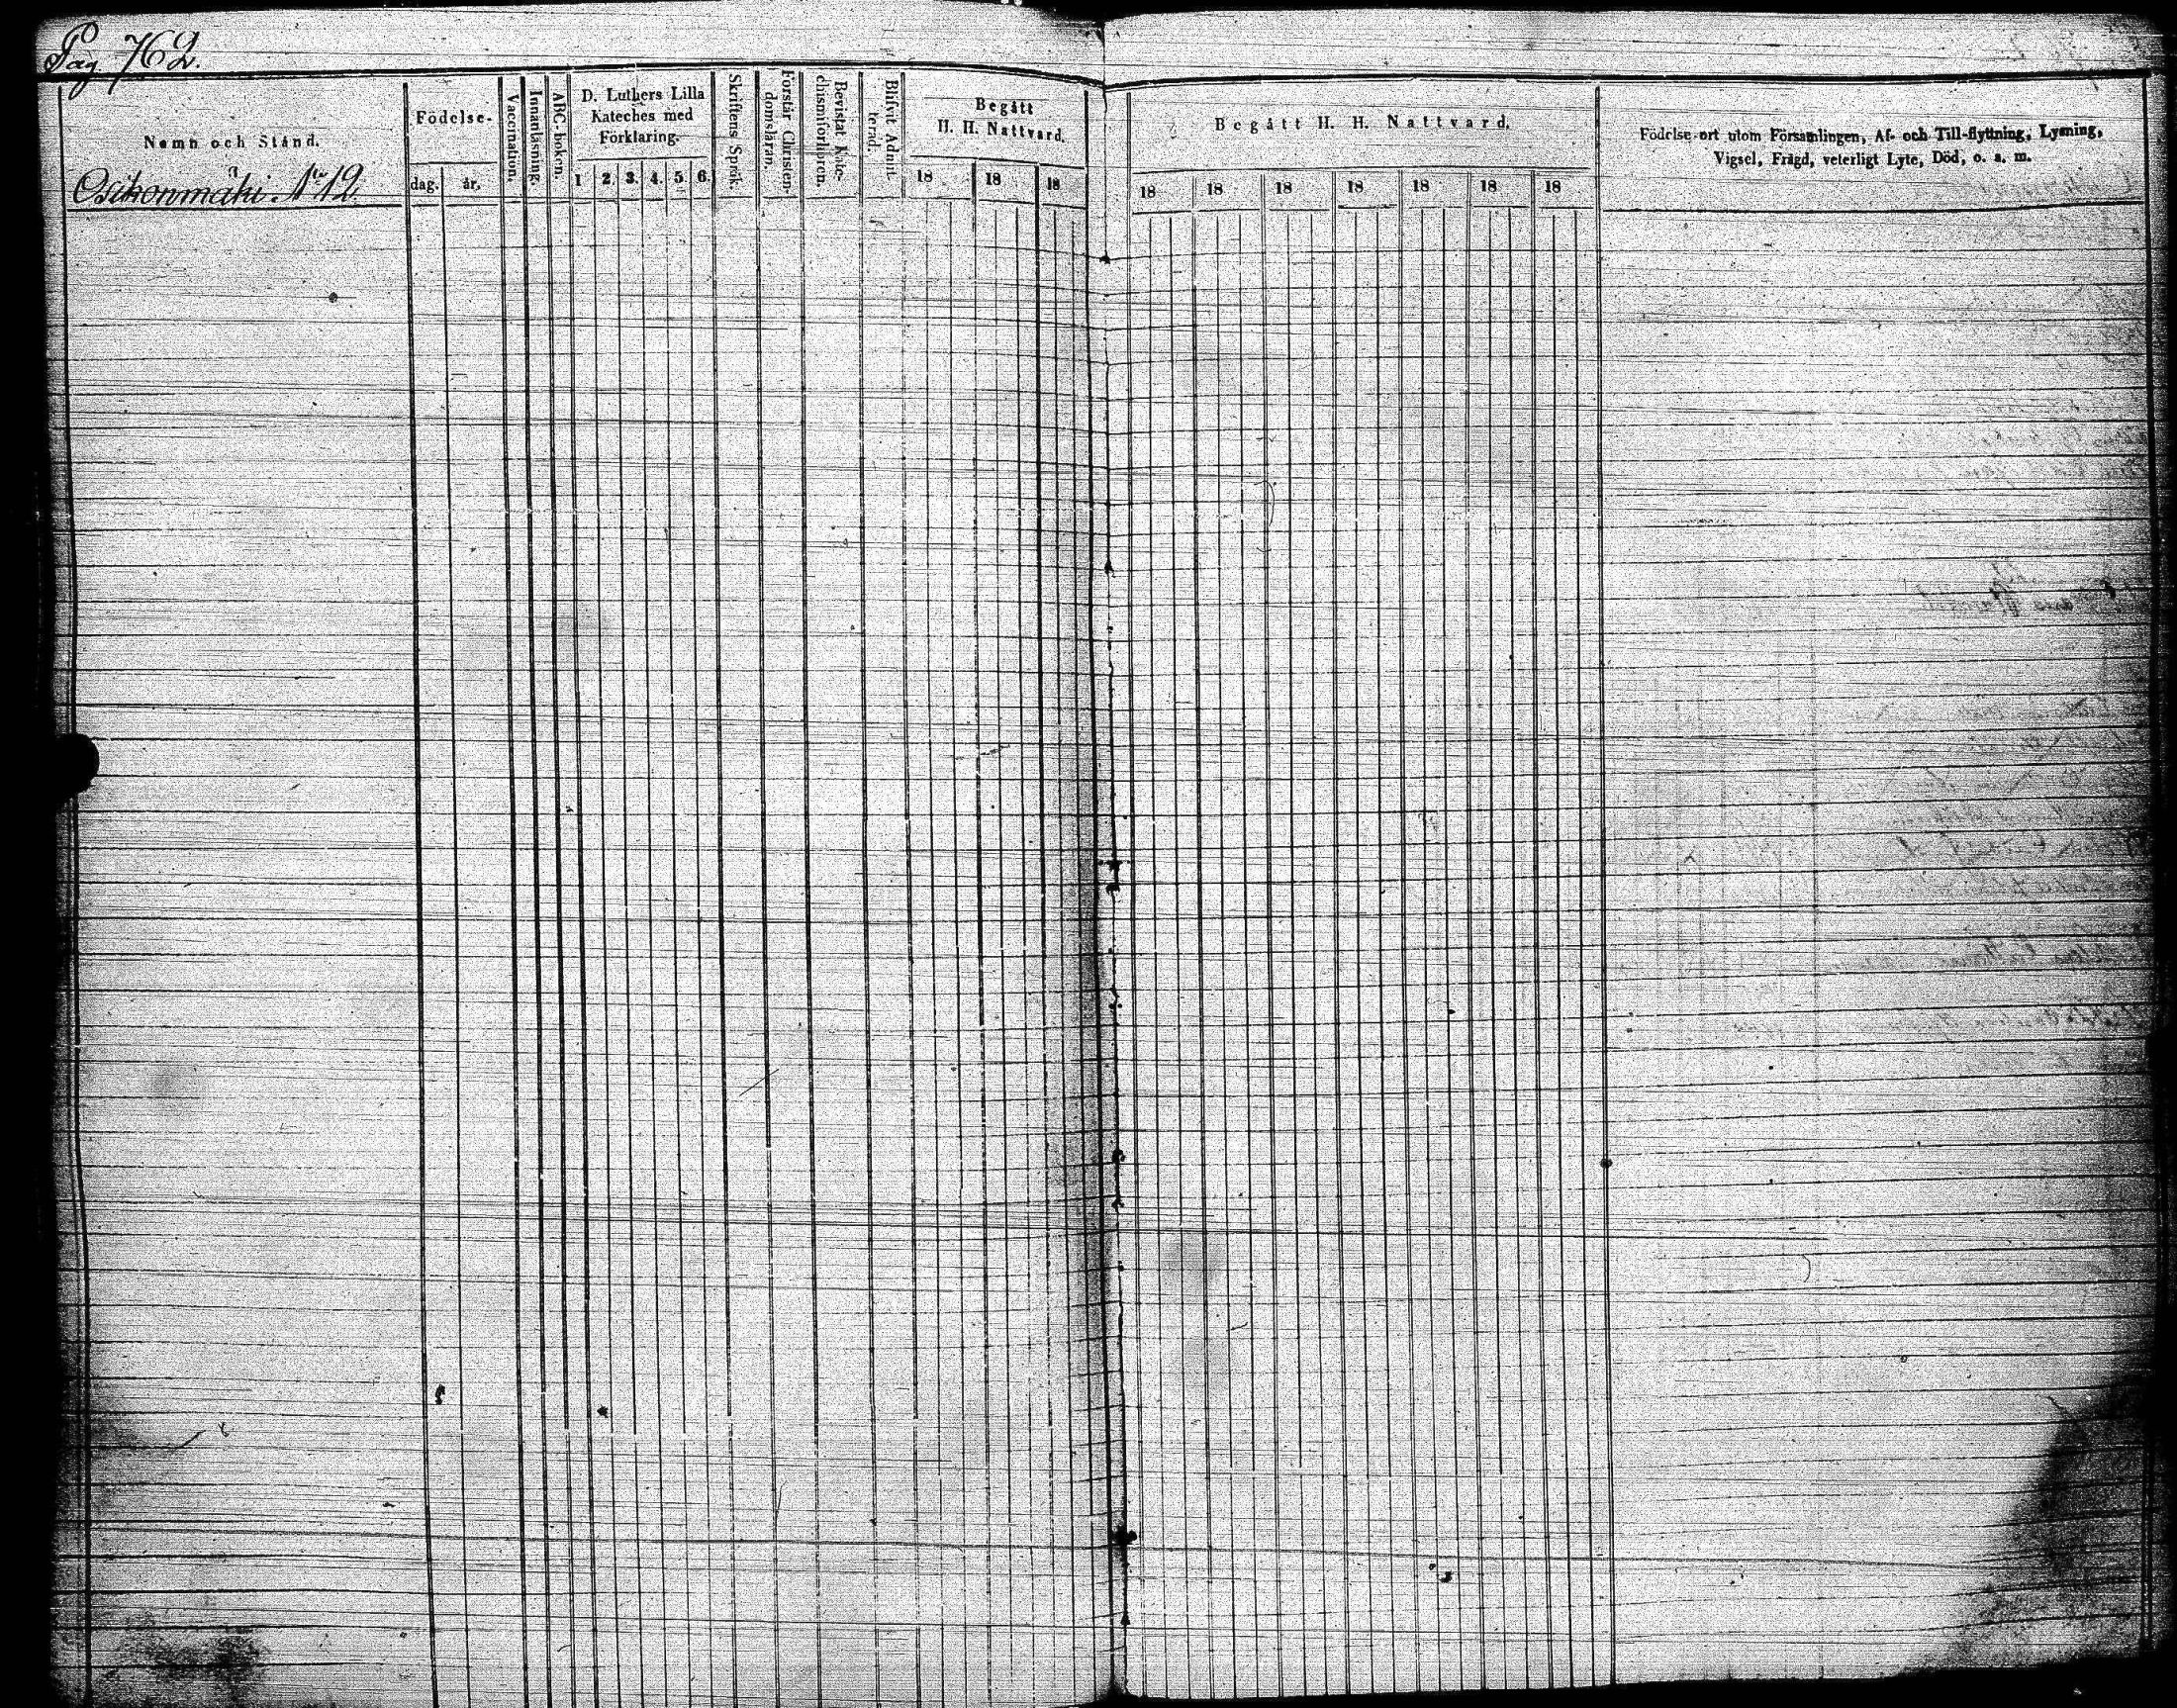 Pag. 762.
Namn och Stånd.
Osikonmäki N:o 12.
Födelse-
dag.
år.
Vaccination.
Innanläsning.
ABC-boken.
D. Luthers Lilla
Kateches med
Förklaring.
1 2. 3. 4. 5. 6.
Skriftens Språk.
Förstår Christen-
domsläran.
Bevistat Kate-
chismiförhören.
Blifvit Admit-
terad.
Begått
H. H. Nattvard.
18 18 18
Begått H. H. Nattvard.
18 18 18 18 18 18 18
Födelse-ort utom Församlingen, Af- och Till-flyttning, Lysning,
Vigsel, Frägd, veterligt Lyte, Död, o. s. m.